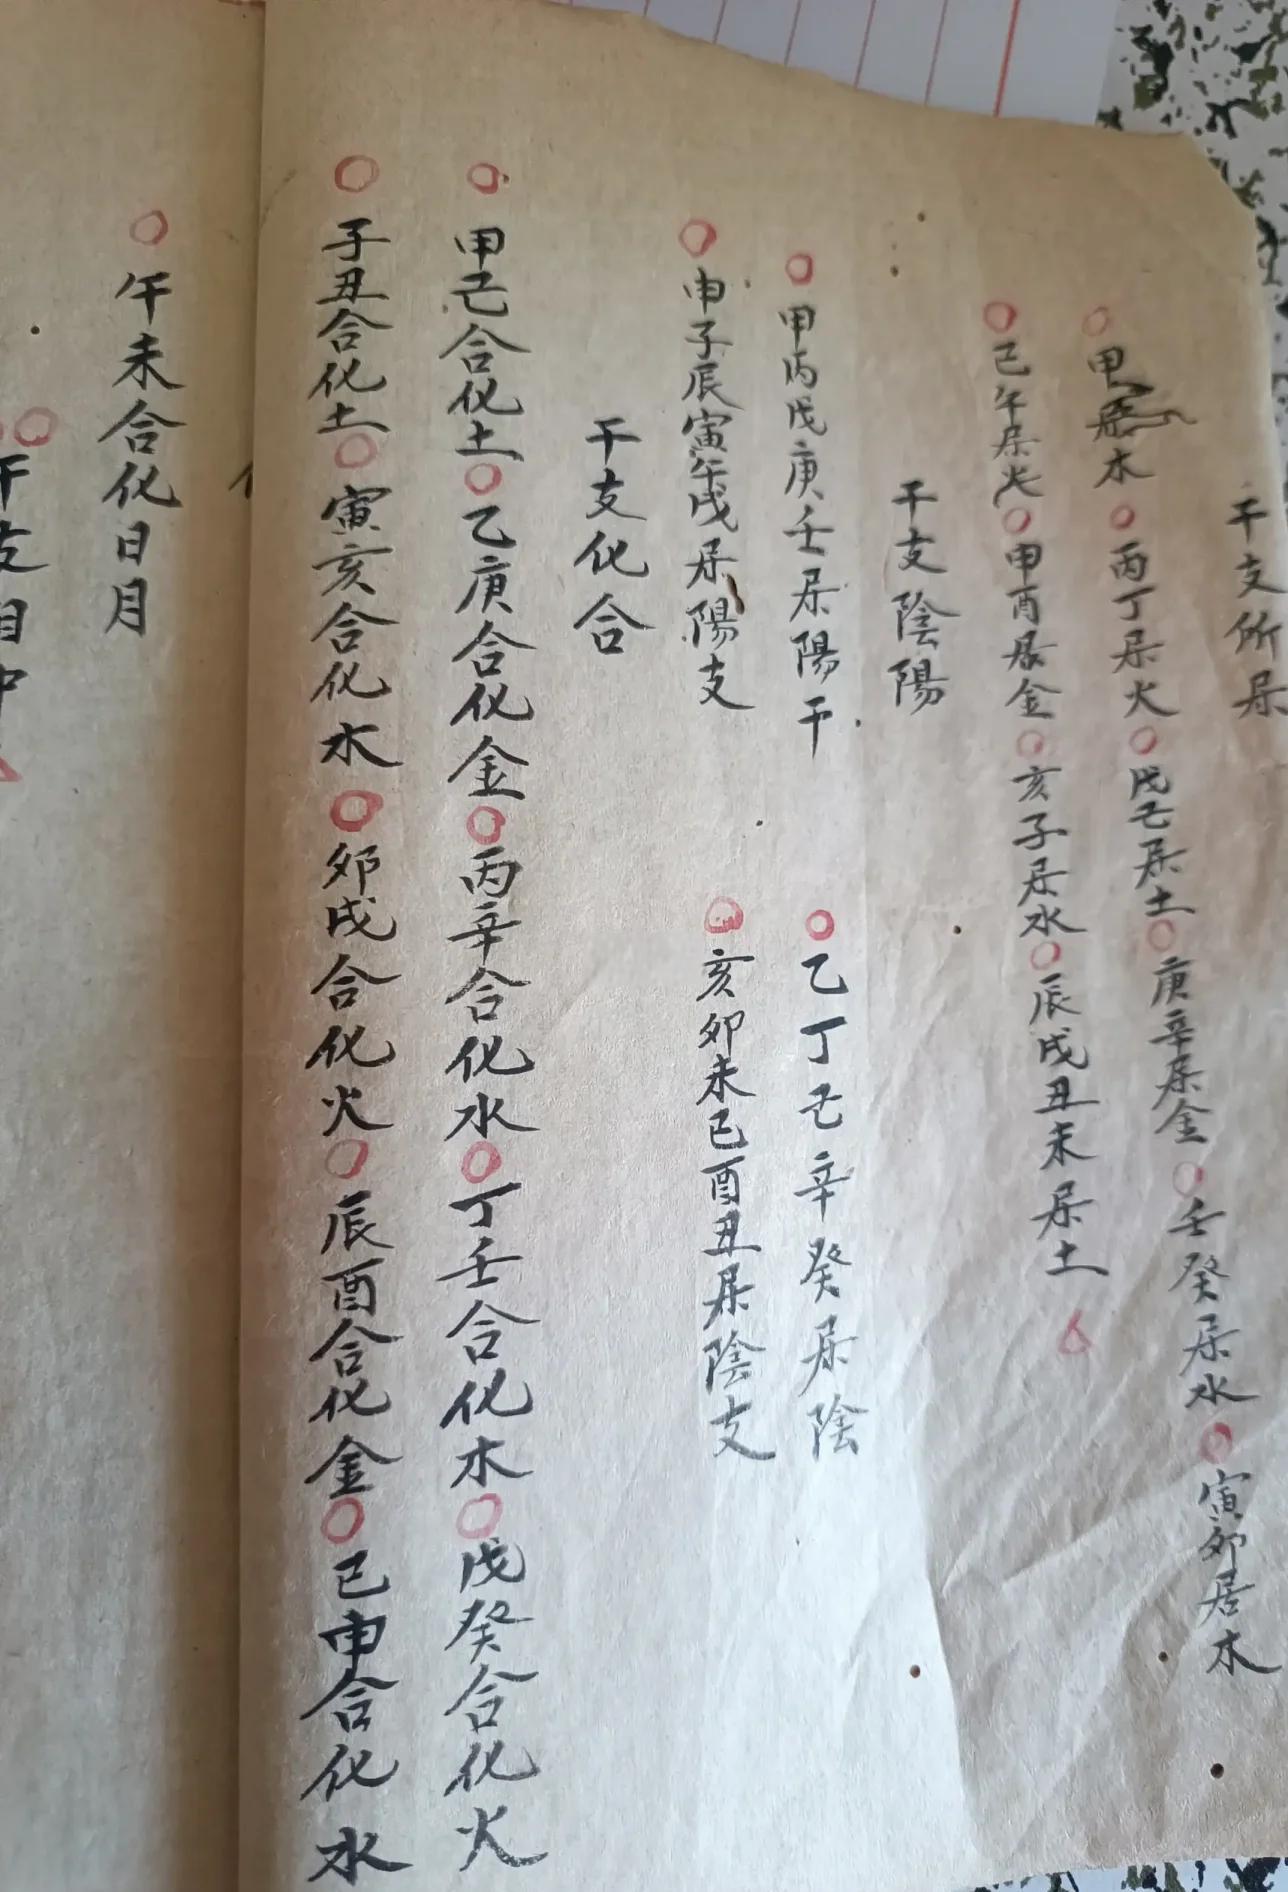 干支所居
○甲居木○丙丁居火○戊己居土○庚辛居金○壬癸居水○寅卯居木
○巳午居火○申酉居金○亥子居水○辰戌丑未居土
干支陰陽
○甲丙戊庚壬居陽干 ○乙丁己辛癸居陰
○申子辰寅午戌居陽支 ○亥卯未巳酉丑居陰支
干支化合
○甲己合化土○乙庚合化金○丙辛合化水○丁壬合化木○戊癸合化火
○子丑合化土○寅亥合化水○卯戌合化火○辰酉合化金○巳申合化水
○午未合化日月
干支相冲